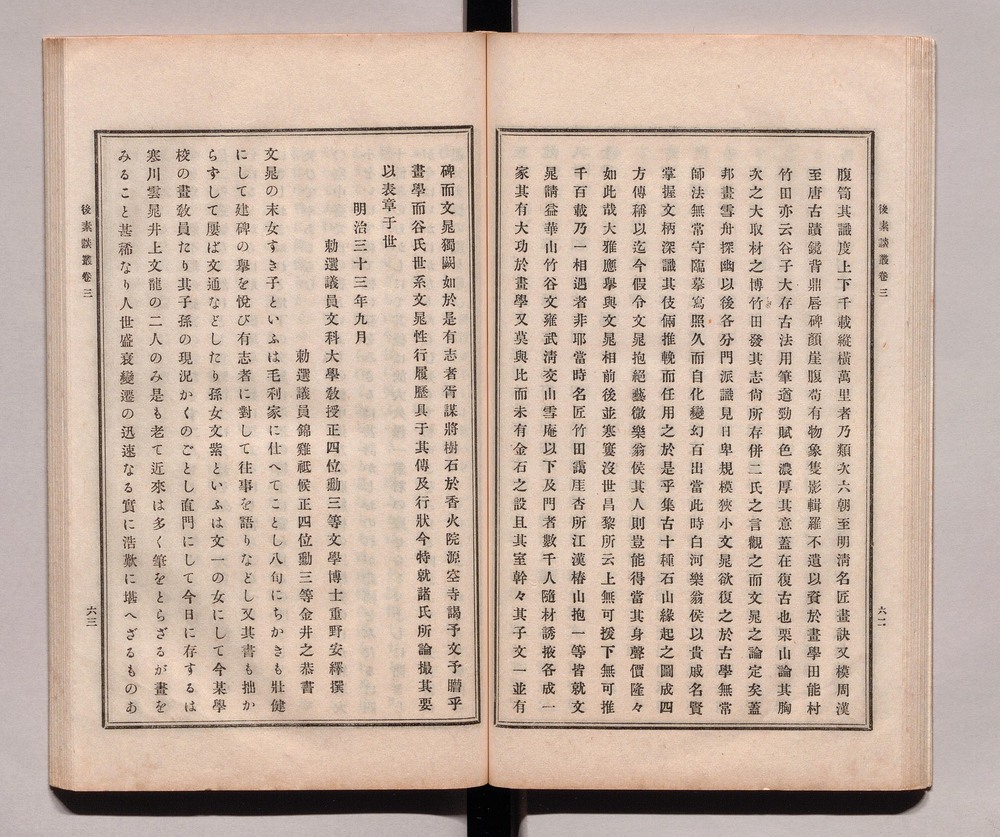 後素談叢卷三
六二
腹笥其識度上下千載縱橫萬里者乃類次六朝至明淸名匠畫訣又模周漢
至唐古蹟鏡背鼎唇碑顏崖腹苟有物象隻影輯羅不遺以資於畫學田能村
竹田亦云谷子大存古法用筆遒勁賦色濃厚其意蓋在復古也栗山論其胸
次之大取材之博竹田發其志尙所存併二氏之言觀之而文晁之論定矣蓋
邦畫雪舟探幽以後各分門派識見日卑規模狹小文晁欲復之於古學無常
師法無常守臨摹寫照久而自化變幻百出當此時白河樂翁侯以貴戚名賢
掌握文柄深識其伎倆推輓而任用之於是乎集古十種石山緣起之圖成四
方傳稱以迄今假令文晁抱絕藝微樂翁侯其人則豈能得當其身聲價隆々
如此哉大雅應擧與文晁相前後並寒窶沒世昌黎所云上無可援下無可推
千百載乃一相遇者非耶當時名匠竹田靄厓杏所江漢椿山抱一等皆就文
晁請益華山竹谷文雍武淸交山雪庵以下及門者數千人隨材誘掖各成一
家其有大功於畫學又莫與比而未有金石之設且其室幹々其子文一並有
碑而文晁獨闕如於是有志者胥謀將樹石於香火院源空寺謁予文予曆乎
畫學而谷氏世系文晁性行履歷具于其傳及行狀今特就諸氏所論撮其要
以表章于世
明治三十三年九月
勅選議員文科大學敎授正四位勳三等文學博士重野安繹撰
勅選議員錦雞祗候正四位勳三等金井之恭書
文晁の末女すき子といふは毛利家に仕へてことし八旬にちかきも壯健
にして建碑の擧を悅び有志者に對して往事を語りなどし又其書も拙か
らずして屢ば文通などしたり孫女文紫といふは文一の女にして今某學
校の畫敎員たり其子孫の現況かくのごとし直門にして今日に存するは
寒川雲晁井上文龍の二人のみ是も老て近來は多く筆をとらざるが畫を
みること甚稀なり人世盛衰變遷の迅速なる實に浩歎に堪へざるものあ
後素談叢卷三
六三